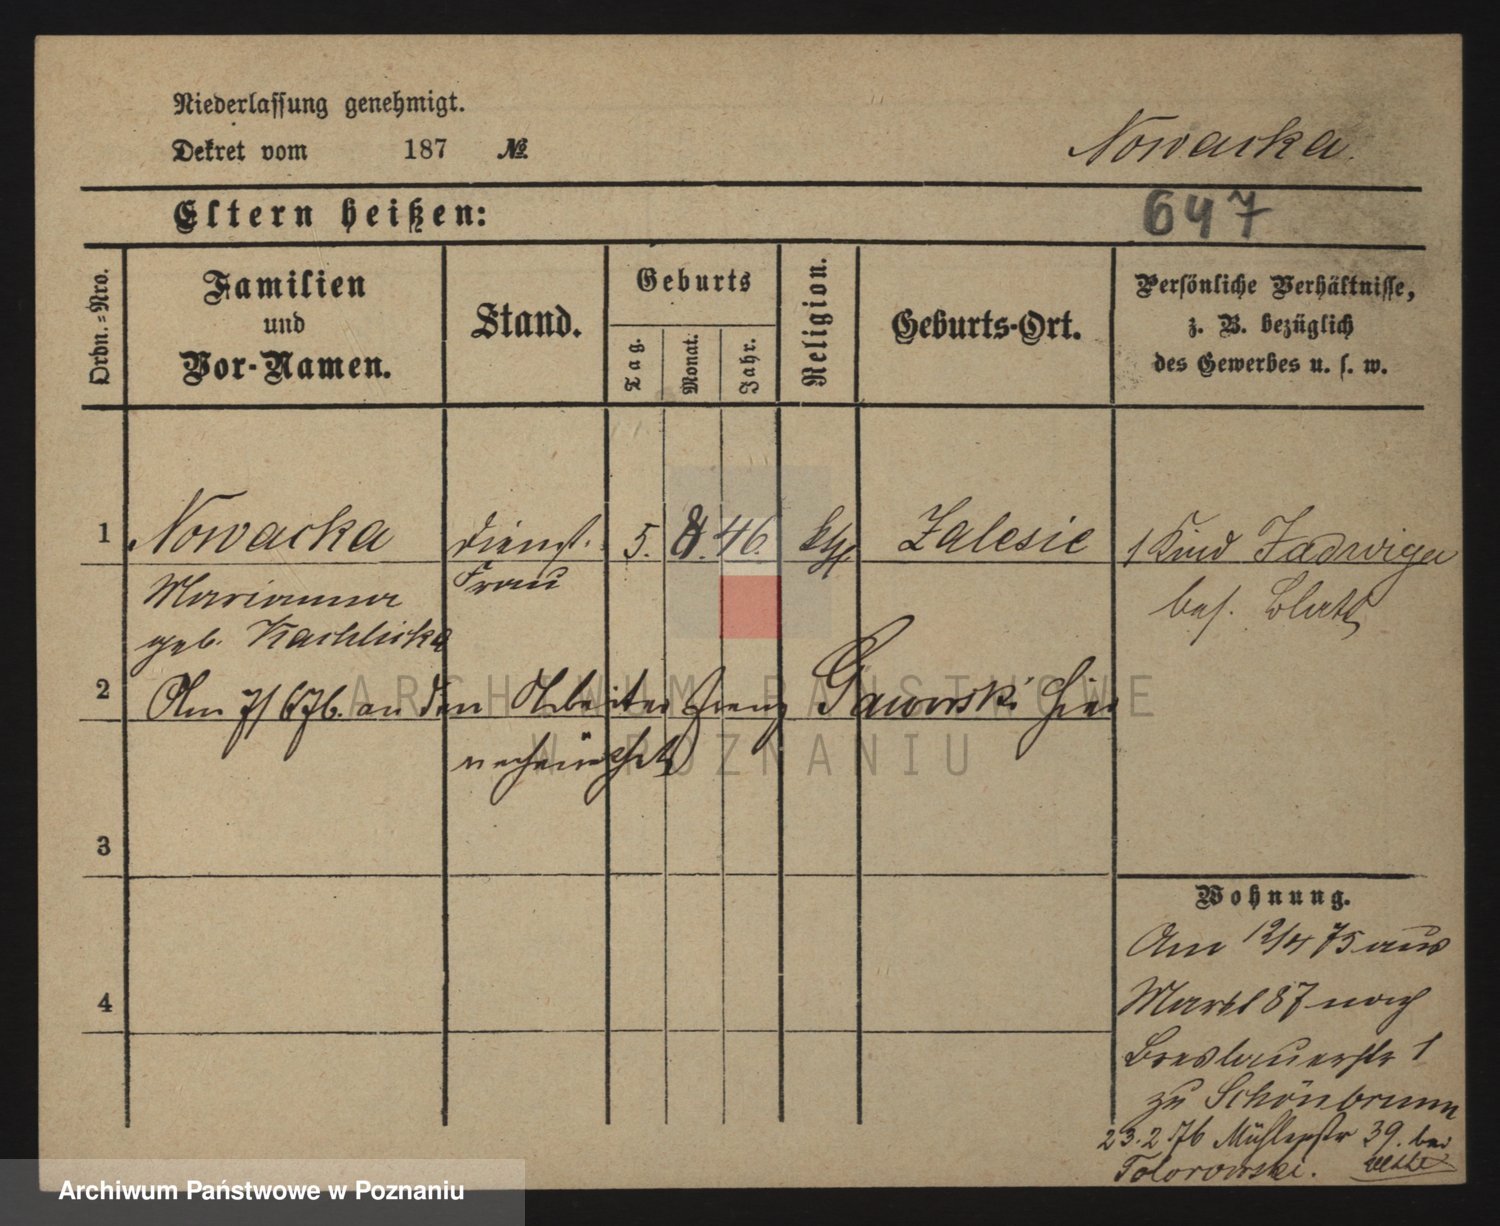 Niederlassung genehmigt.
Dekret vom 187 №
Nowacka.
Eltern heißen:
647
Ordn.-Nro.
Familien
und
Vor-Namen.
Stand.
Geburts
Tag.
Monat.
Jahr.
Religion.
Geburts-Ort.
Persönliche Verhältnisse,
z. B. bezüglich
des Gewerbes u. s. w.
1 Nowacka Dienst. 5. 8. 46. kth Zalesie 1 Kind Jadwiga
Marianna Frau bes. Blatt
geb.
2 Am 7/6 76. an den Arbeiter Franz Gaworski hier
verheirathet
3
4
Wohnung.
Am 12/4 75 aus
Markt 87 nach
Breslauerstr 1
zu Schönbrunn
23.2.76 Mühlenstr 39. bei
Tolorowski.
ARCHIWUM PAŃSTWOWE
W POZNANIU
Archiwum Państwowe w Poznaniu